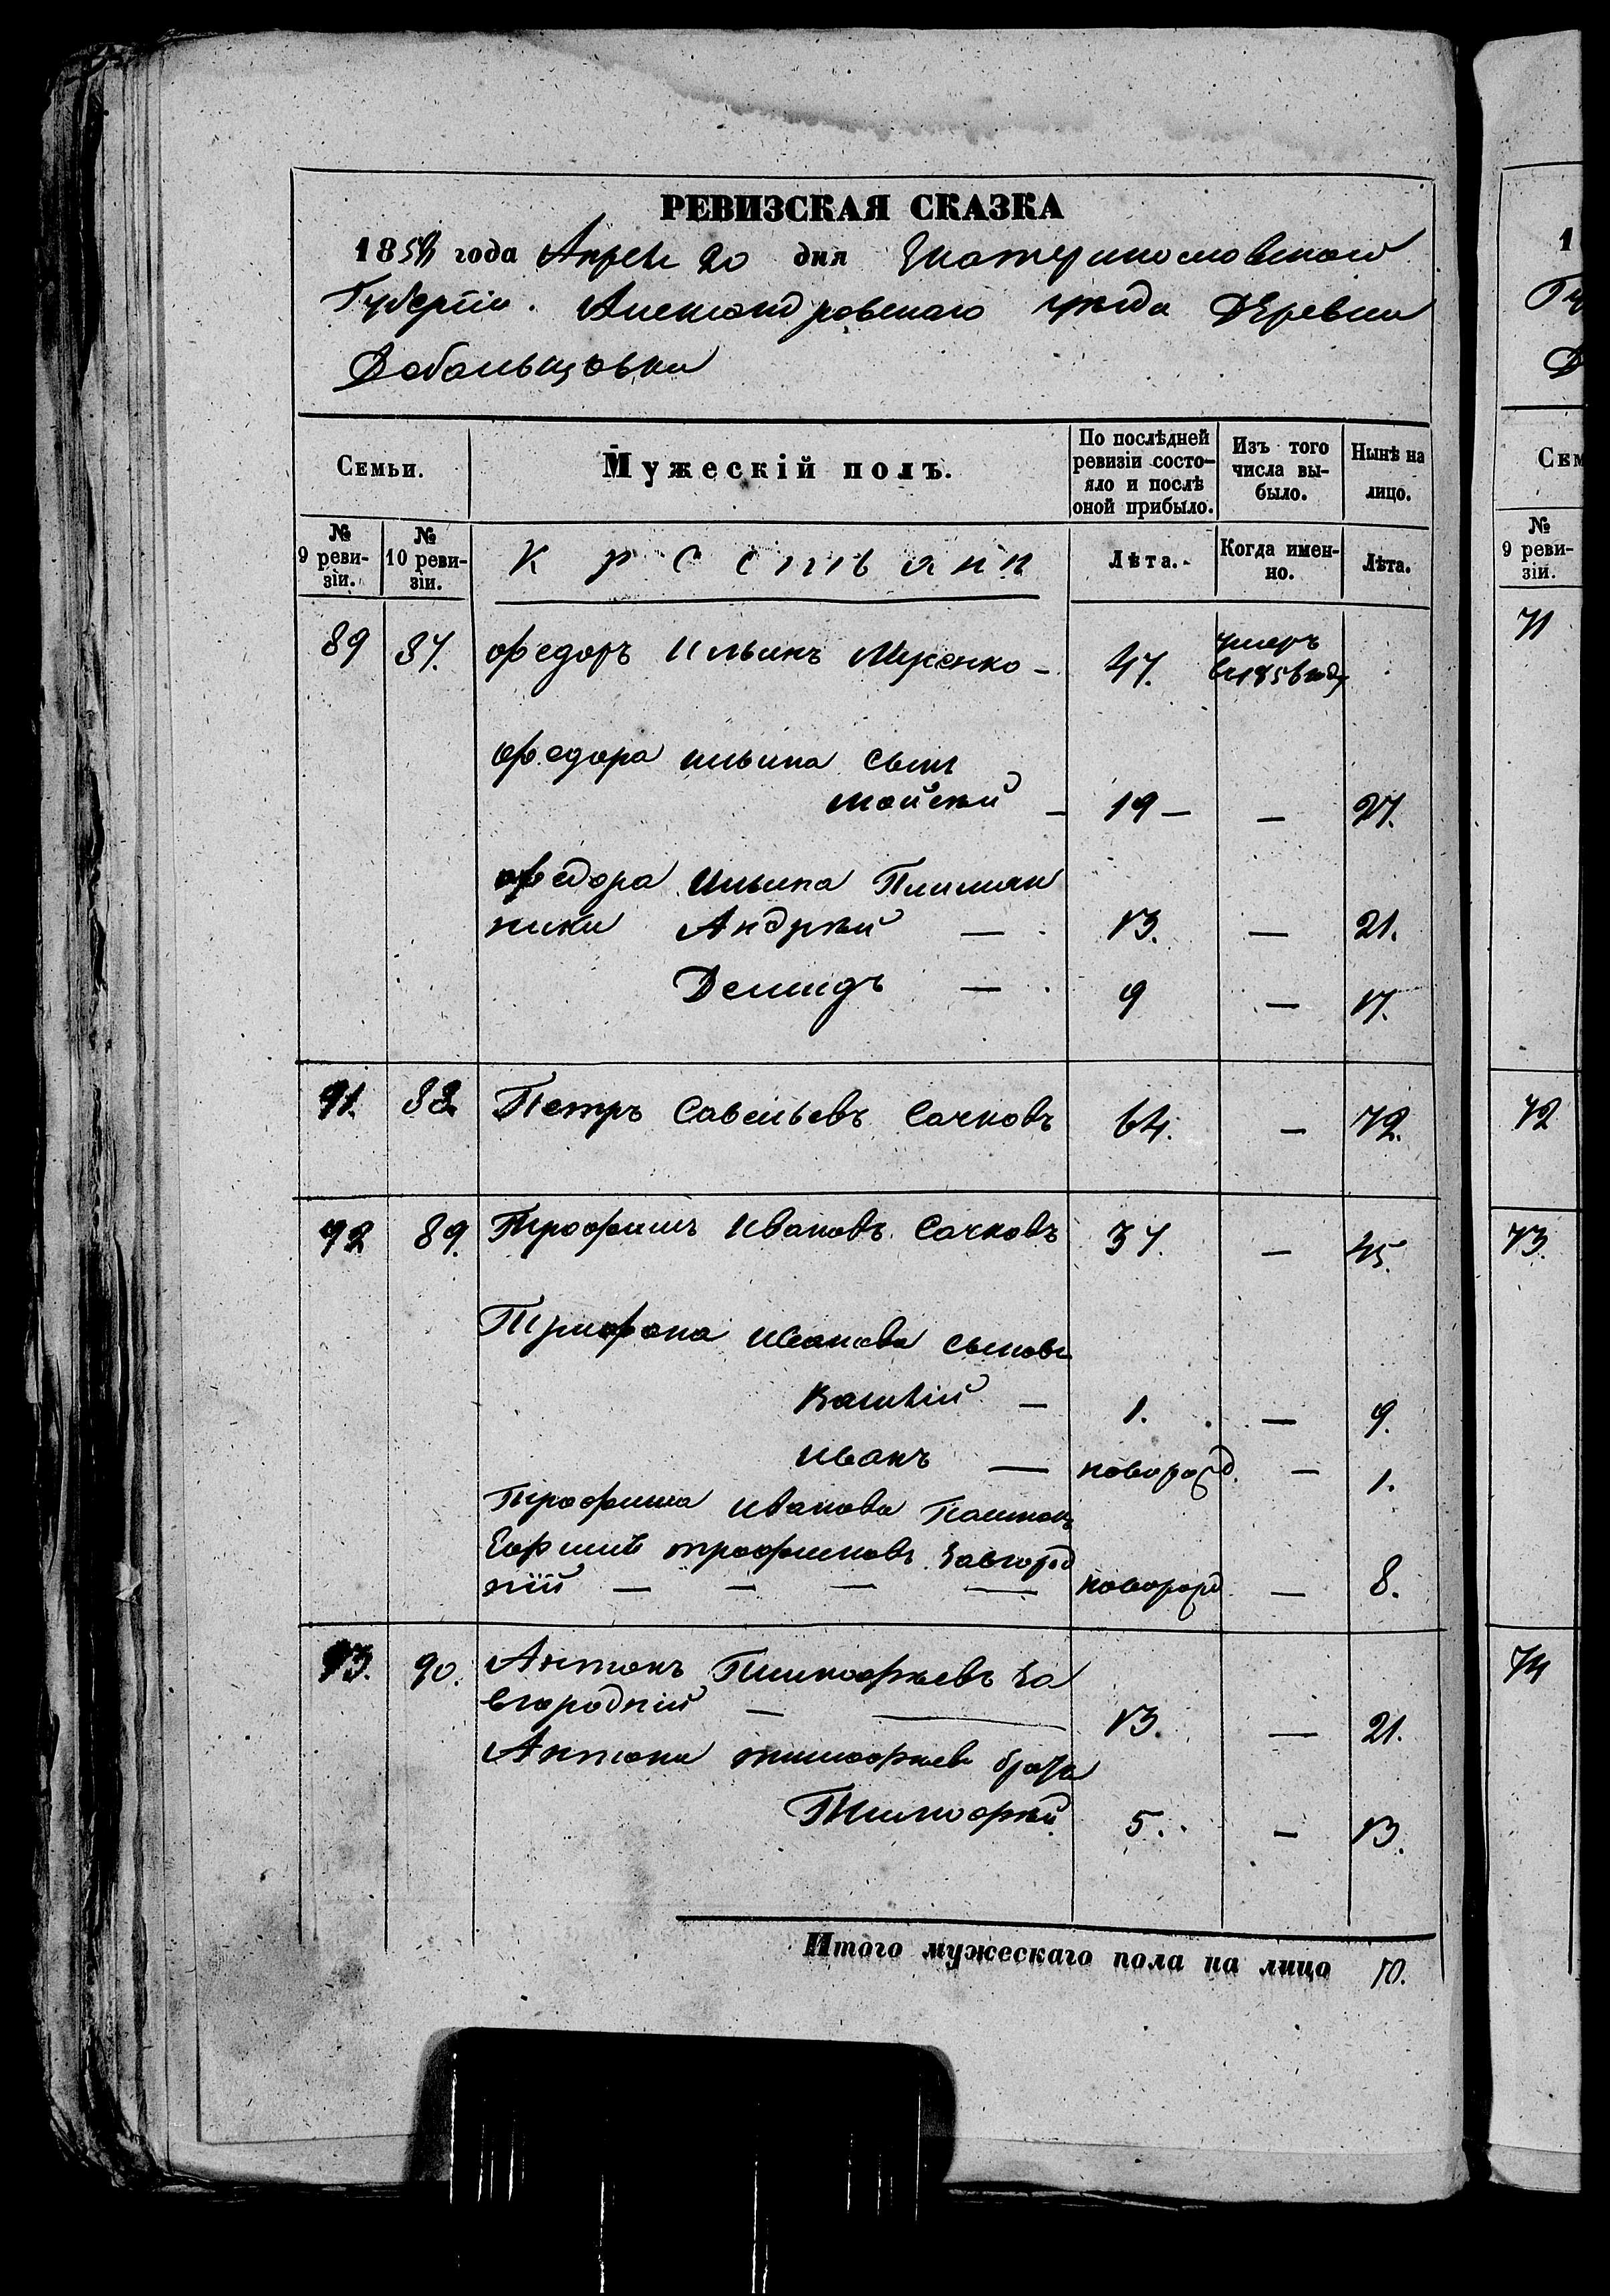 РЕВИЗСКАЯ СКАЗКА
1858 года Апреля 20 дня Екатеринославской
Губерніи. Александровскаго уѣзда Деревни
Дебальцовки
Семьи.
Мужескій полъ.
По послѣдней ревизіи состо-яло и послѣ оной прибыло.
Изъ того числа вы-было.
Нынѣ на лицо.
№ 9 реви-зіи.
№ 10 реви-зіи.
Крестьяни
Лѣта.
Когда имен-но.
Лѣта.
89 87. Федоръ Ильинъ 47. умеръ в 1856 году
Федора Ильина сынъ
Мойсей — 19 — — 27.
Федора Ильина Племян
ники Андрѣй — 13. — 21.
Демидъ — 9 — 17.
91. 88. Петръ Савельевъ Сачковъ 64. — 72.
92 89. Трофимъ Ивановъ Сачковъ 37. — 45.
Иванова сыновья
Василій — 1. — 9.
Иванъ — новорожд. — 1.
Трофима Иванова
Ефимъ Трофимовъ Завгород
ній — — — — новорожд — 8.
93. 90. Антонъ Тимофѣевъ За
вгородній — — 13. — 21.
Антона Тимофѣева братъ
Тимофѣй 5. — 13.
Итого мужескаго пола на лицо 10.
1
Гу
Д
Сем
№ 9 реви-зіи.
71
72
73.
74